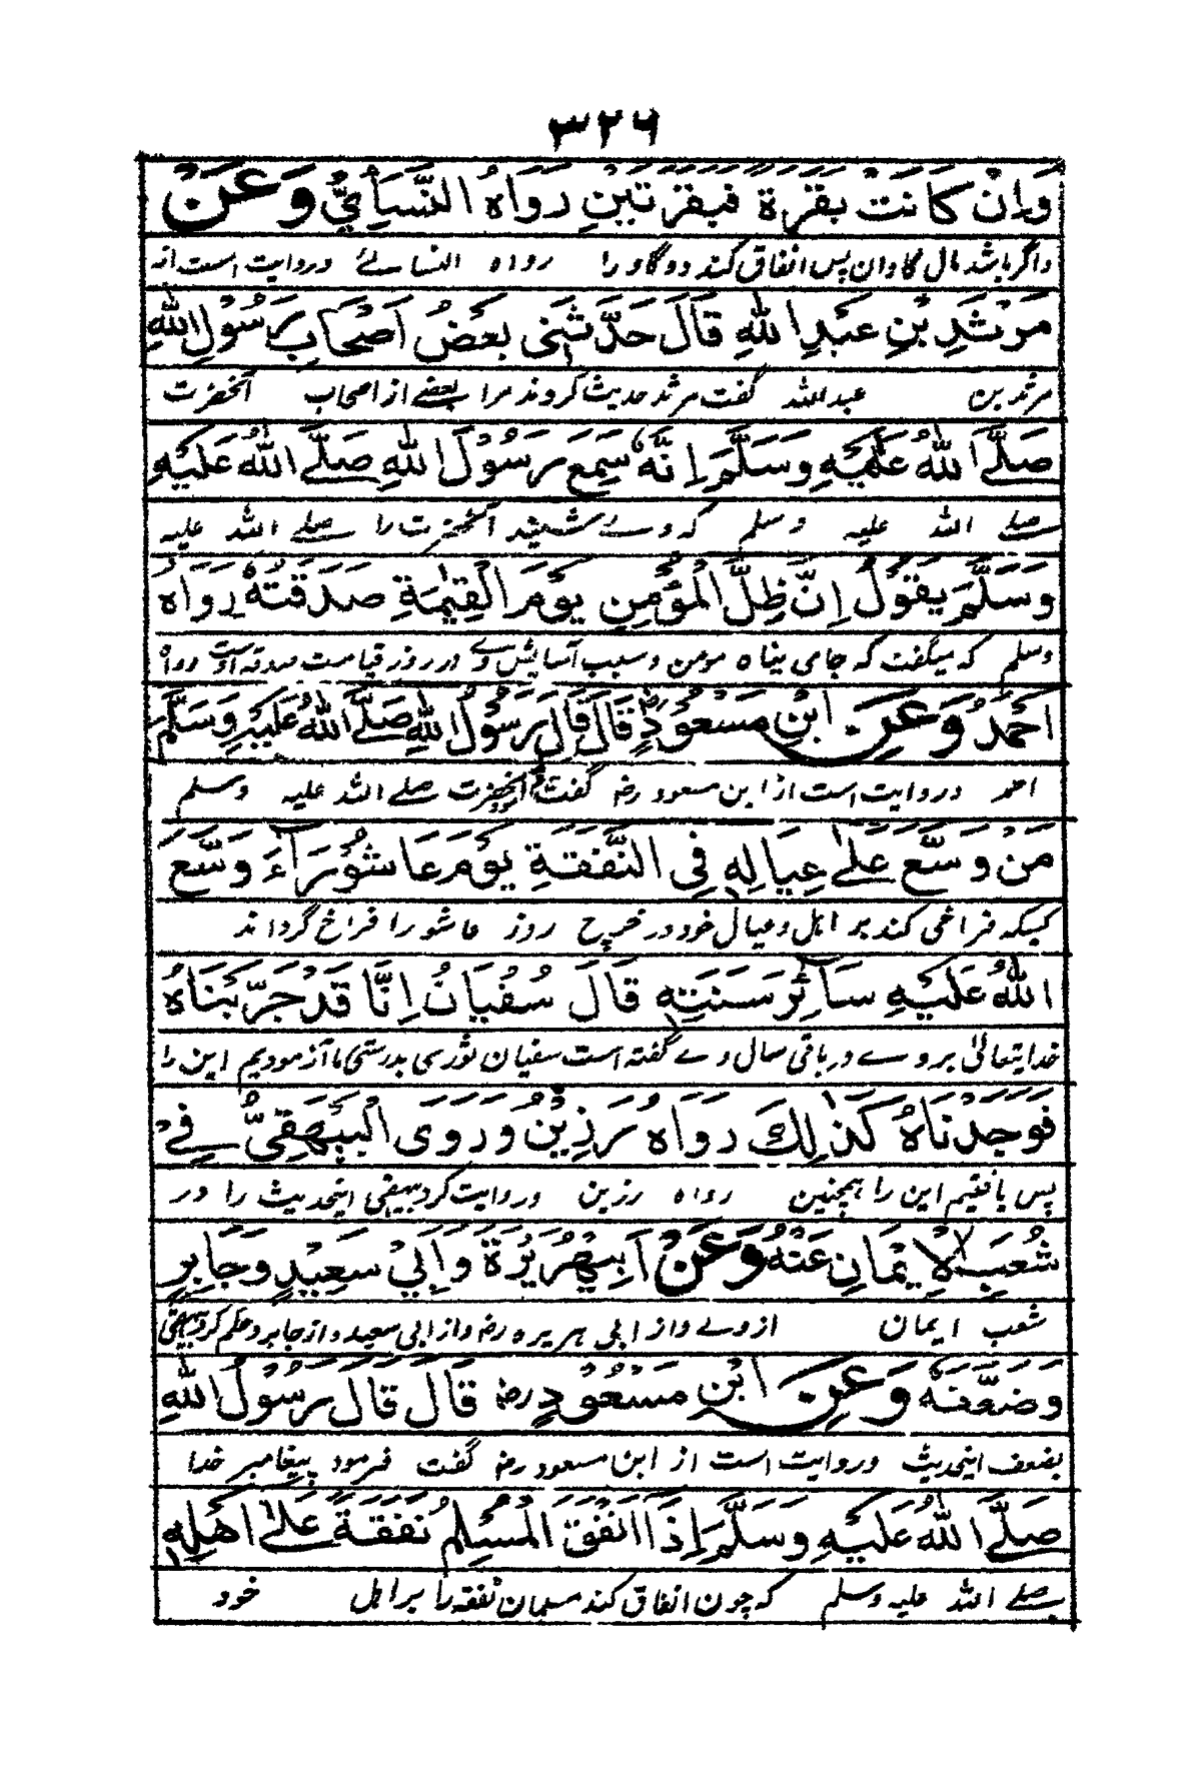 ۳۲۶
وَاِنْ كَانَتْ بَقَرَةً فَبَقَرَتَيْنِ رَوَاهُ النَّسَائِيُّ وَعَنْ
واگر باشد مال گاوان پس انفاق کند دو گاو را رواه النسائے وروایت است از
مَرْثَدِ بْنِ عَبْدِ اللّٰهِ قَالَ حَدَّثَنِى بَعْضُ اَصْحَابِ رَسُوْلِ اللّٰهِ
مرثد بن عبدالله گفت مرثد حدیث کردند مرا بعضے از اصحاب آنحضرت
صَلَّے اللّٰهُ عَلَيْهِ وَسَلَّمَ اِنَّهٗ سَمِعَ رَسُوْلَ اللّٰهِ صَلَّے اللّٰهُ عَلَيْهِ
صلے الله علیه وسلم که وے شنید آنحضرت را صلے الله علیه
وَسَلَّمَ يَقُوْلُ اِنَّ ظِلَّ الْمُؤْمِنِ يَوْمَ الْقِيٰمَةِ صَدَقَتُهٗ رَوَاهُ
وسلم که میگفت که جای پناه مومن وسبب آسایش وے در روز قیامت صدقه اوست رواه
اَحْمَدُ وَعَنِ ابْنِ مَسْعُوْدٍ رض قَالَ قَالَ رَسُوْلُ اللّٰهِ صَلَّے اللّٰهُ عَلَيْهِ وَسَلَّمَ
احمد وروایت است از ابن مسعود رض گفت آنحضرت صلے الله علیه وسلم
مَنْ وَسَّعَ عَلٰے عِيَالِهٖ فِى النَّفَقَةِ يَوْمَ عَاشُوْرَآءَ وَسَّعَ
کسیکه فراخی کند بر اهل و عیال خود در خرچ روز عاشورا فراخ گرداند
اللّٰهُ عَلَيْهِ سَآئِرَ سَنَتِهٖ قَالَ سُفْيَانُ اِنَّا قَدْ جَرَّبْنَاهُ
خدایتعالیٰ بر وے در باقی سال وے گفته است سفیان ثوری بدرستی ما آزمودیم این را
فَوَجَدْنَاهُ كَذٰلِكَ رَوَاهُ رَزِيْنٌ وَرَوَى الْبَيْهَقِيُّ فِے
پس یافتیم این را همچنین رواه رزین وروایت کرد بیهقی اینحدیث را در
شُعَبِ الْاِيْمَانِ عَنْهُ وَعَنْ اَبِىْ هُرَيْرَةَ وَاَبِيْ سَعِيْدٍ وَجَابِرٍ
شعب ایمان از وے واز ابی هریره رض واز ابی سعید واز جابر وحکم کرد بیهقی
وَضَعَّفَهٗ وَعَنِ ابْنِ مَسْعُوْدٍ رض قَالَ قَالَ رَسُوْلُ اللّٰهِ
بضعف اینحدیث وروایت است از ابن مسعود رض گفت فرمود پیغامبر خدا
صَلَّے اللّٰهُ عَلَيْهِ وَسَلَّمَ اِذَا اَنْفَقَ الْمُسْلِمُ نَفَقَةً عَلٰے اَهْلِهٖ
صلے الله علیه وسلم که چون انفاق کند مسلمان نفقه را بر اهل خود